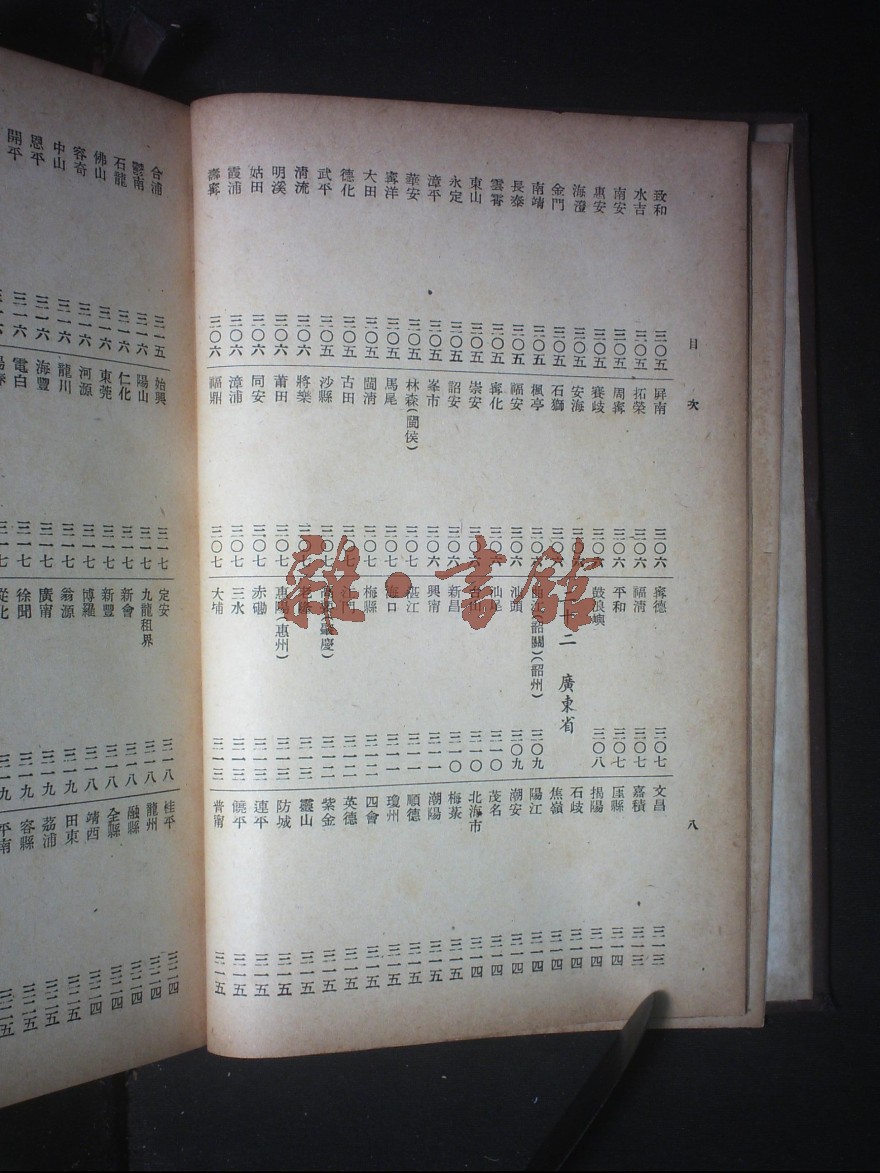 目次
八
致和 三〇五
水吉 三〇五
南安 三〇五
惠安 三〇五
海澄 三〇五
金門 三〇五
南靖 三〇五
長泰 三〇五
雲霄 三〇五
東山 三〇五
永定 三〇五
漳平 三〇五
華安 三〇五
寗洋 三〇五
大田 三〇五
德化 三〇五
武平 三〇五
清流 三〇六
明溪 三〇六
姑田 三〇六
霞浦 三〇六
壽寗 三〇六
屏南 三〇六
拓榮 三〇六
周寗 三〇六
賽岐 三〇六
安海
石獅
楓亭 三〇六
福安 三〇六
寗化 三〇六
崇安 三〇六
詔安 三〇六
峯市 三〇六
林森(閩侯) 三〇七
馬尾 三〇七
閩清 三〇七
古田 三〇七
沙縣 三〇七
將樂 三〇七
莆田 三〇七
同安 三〇七
漳浦 三〇七
福鼎 三〇七
寗德 三〇七
福清 三〇七
平和 三〇七
鼓浪嶼 三〇八
二十二 廣東省
曲江(韶關)(韶州) 三〇九
汕頭 三〇九
汕尾 三一〇
台山 三一〇
新昌 三一〇
興甯 三一一
湛江 三一一
海口 三一一
梅縣 三一二
江門 三一二
高要(肇慶) 三一二
老隆 三一二
惠陽(惠州) 三一三
赤磡 三一三
三水 三一三
大埔 三一三
文昌 三一三
嘉積 三一三
厓縣 三一四
揭陽 三一四
石岐 三一四
蕉嶺 三一四
陽江 三一四
潮安 三一四
茂名 三一四
北海市 三一四
梅菉 三一五
潮陽 三一五
順德 三一五
瓊州 三一五
四會 三一五
英德 三一五
紫金 三一五
靈山 三一五
防城 三一五
連平 三一五
饒平 三一五
普甯 三一五
合浦 三一五
鬱南 三一六
石龍 三一六
佛山 三一六
容奇 三一六
中山 三一六
恩平 三一六
開平 三一六
始興 三一七
陽山 三一七
仁化 三一七
東莞 三一七
河源 三一七
龍川 三一七
海豐 三一七
電白 三一七
定安 三一八
九龍租界 三一八
新會 三一八
新豐 三一八
博羅 三一八
翁源 三一九
廣甯 三一九
徐聞 三一九
從化 三一九
桂平 三二四
龍州 三二四
融縣 三二四
全縣 三二四
靖西 三二四
田東 三二五
荔浦 三二五
容縣 三二五
平南 三二五
雜·書館